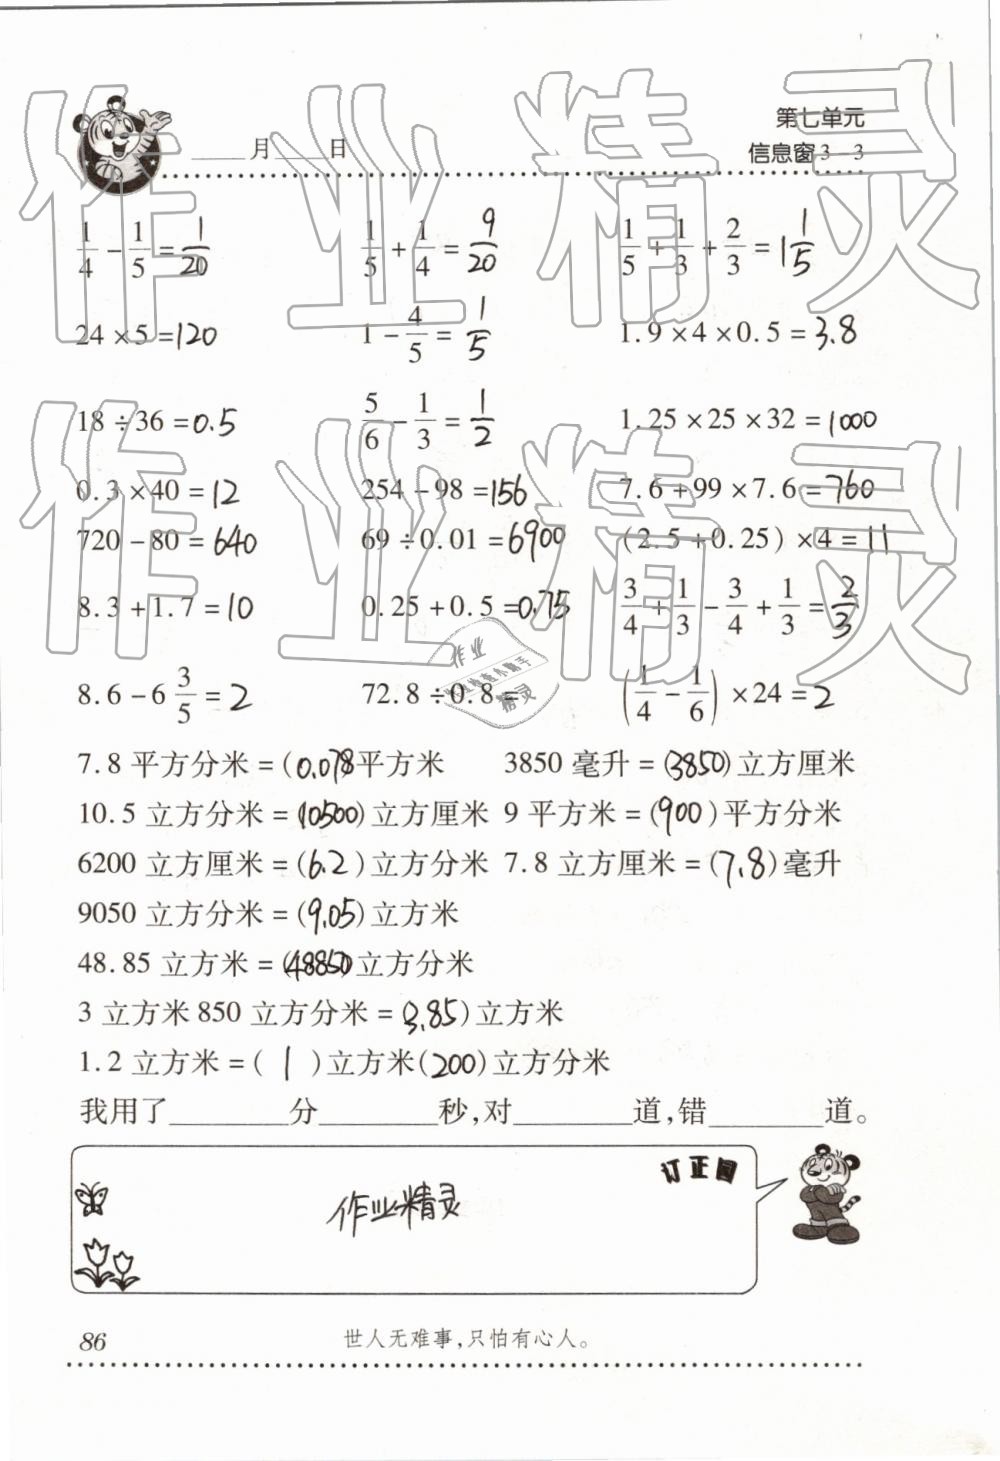 第七单元
____月____日 信息窗3-3
1/4 - 1/5 = 1/20 1/5 + 1/4 = 9/20 1/5 + 1/3 + 2/3 = 1 1/5
24×5=120 1 - 4/5 = 1/5 1.9×4×0.5=3.8
18÷36=0.5 5/6 - 1/3 = 1/2 1.25×25×32=1000
0.3×40=12 254-98=156 7.6+99×7.6=760
720-80=640 69÷0.01=6900 (2.5+0.25)×4=11
8.3+1.7=10 0.25+0.5=0.75 3/4 + 1/3 - 3/4 + 1/3 = 2/3
8.6-6 3/5 = 2 72.8÷0.8= (1/4 - 1/6)×24=2
7.8平方分米=(0.078平方米 3850毫升=(3850)立方厘米
10.5立方分米=(10500)立方厘米 9平方米=(900)平方分米
6200立方厘米=(6.2)立方分米 7.8立方厘米=(7.8)毫升
9050立方分米=(9.05)立方米
48.85立方米=(48850)立方分米
3立方米850立方分米=(3.85)立方米
1.2立方米=(1)立方米(200)立方分米
我用了________分________秒,对________道,错________道。
订正园
作业精灵
86 世人无难事,只怕有心人。
作业精灵
作业精灵
作业
精灵